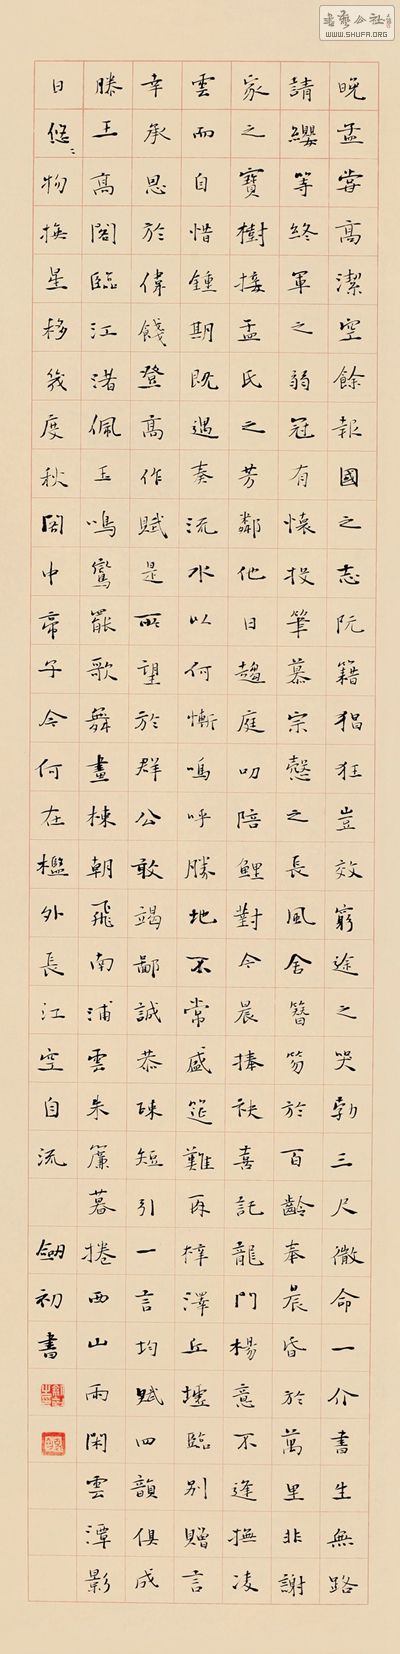 晚孟嘗高潔空餘報國之志阮籍猖狂豈效窮途之哭勃三尺微命一介書生無路
請纓等終軍之弱冠有懷投筆慕宗愨之長風舍簪笏於百齡奉晨昏於萬里非謝
家之寶樹接孟氏之芳鄰他日趨庭叨陪鯉對今晨捧袂喜託龍門楊意不逢撫凌
雲而自惜鍾期既遇奏流水以何慚嗚呼勝地不常盛筵難再梓澤丘墟臨別贈言
幸承恩於偉餞登高作賦是所望於群公敢竭鄙誠恭疎短引一言均賦四韻俱成
滕王高閣臨江渚佩玉鳴鸞罷歌舞畫棟朝飛南浦雲朱簾暮捲西山雨閑雲潭影
日悠〻物換星移幾度秋閣中帝子今何在檻外長江空自流 劍初書
書藝公社
WWW.SHUFA.ORG